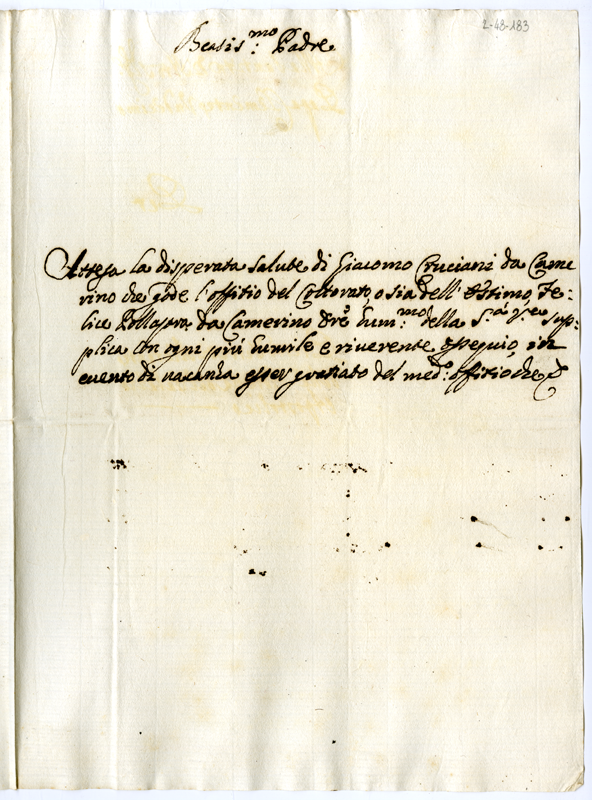 2-48-183
Beatis.mo Padre
Attesa la disperata salute di Giacomo Cruciani da Came
rino che gode l'offitio del Coltorato, o sia dell'Estimo, Fe:
lice Pollastra da Camerino Ore. hum.mo della S.tà V.ra sup:
plica con ogni più humile e riverente ossequio, in
evento di vacanza esser gratiato del med.o offitio, che